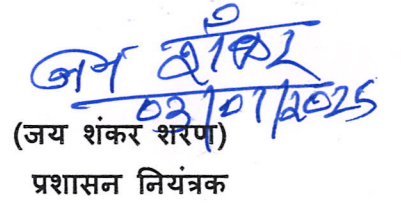 जय शंकर
03/01/2025
(जय शंकर शरण)
प्रशासन नियंत्रक